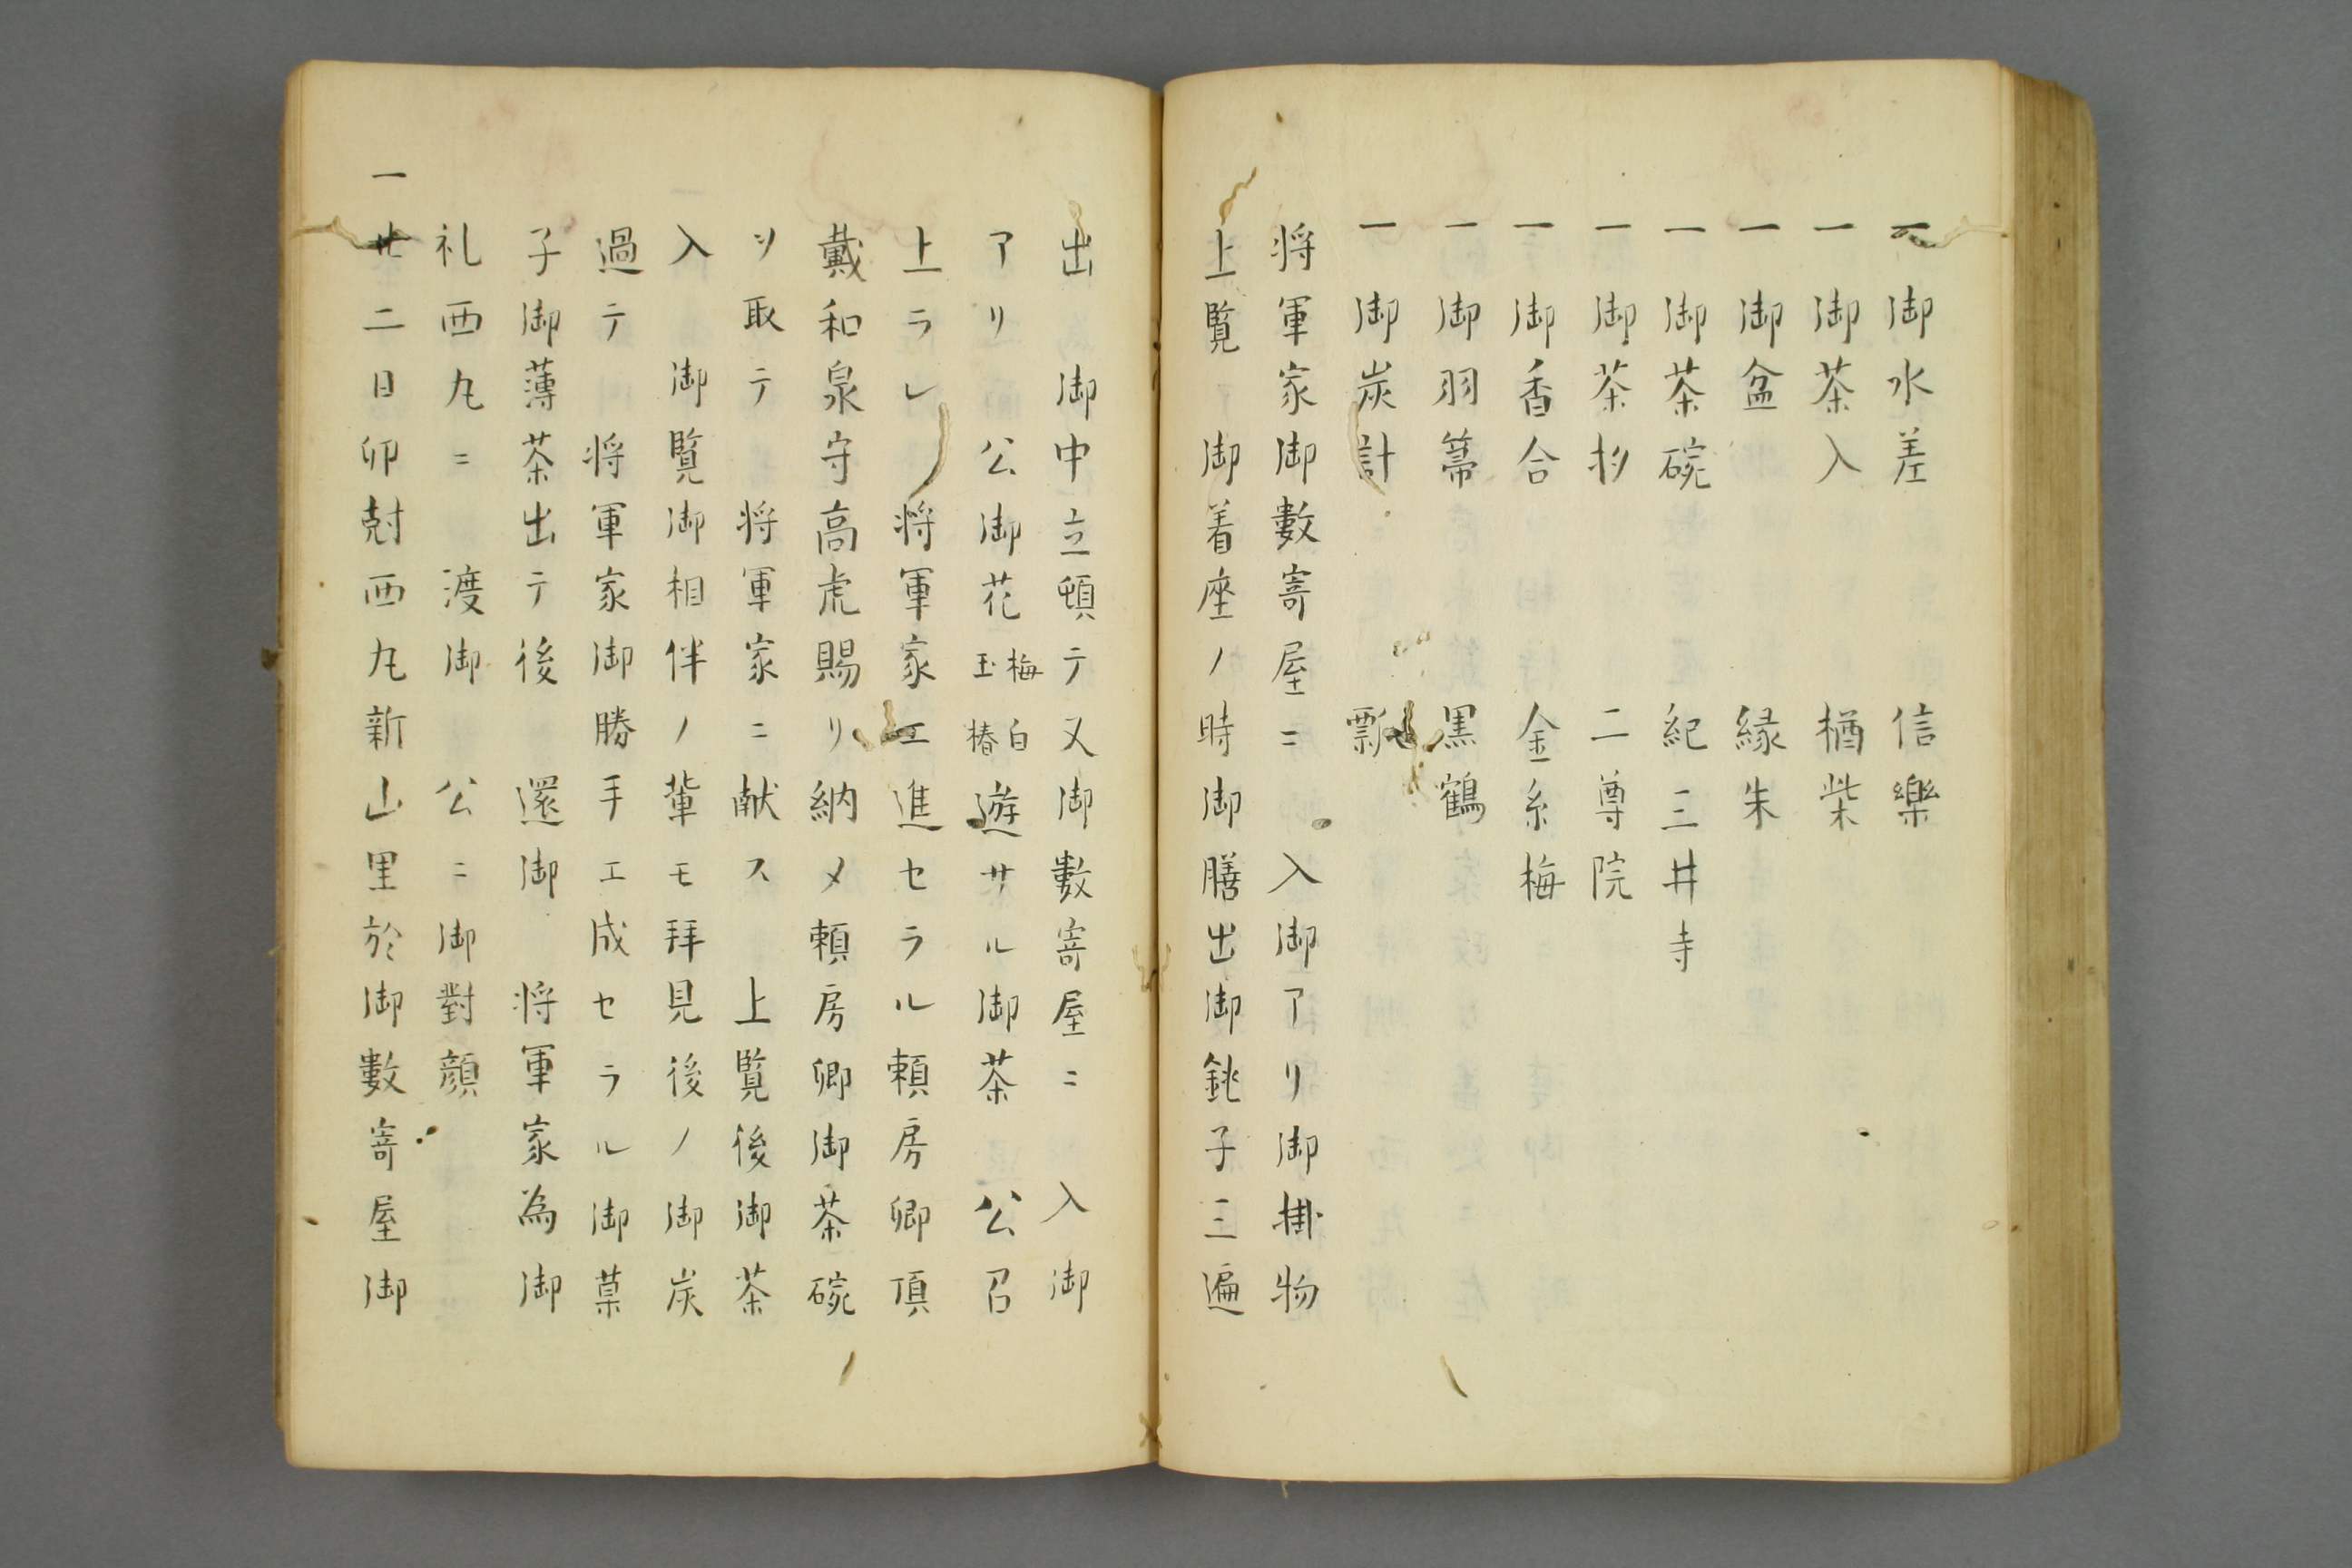 一御水差 信樂
一御茶入 楢柴
一御盆 縁朱
一御茶碗 紀三井寺
一御茶杉 二尊院
一御香合 金糸梅
一御羽箒 黒鶴
一御炭計 瓢
将軍家御數寄屋ニ 入御アリ御掛物
上覧 御着座ノ時御膳出御銚子三遍
出 御中立頓テ又御數寄屋ニ 入御
アリ 公御花梅白玉椿遊サル御茶 公召
上ラレ 将軍家エ進セラル頼房卿頂
戴和泉守高虎賜リ納メ頼房卿御茶碗
ヲ取テ 将軍家ニ献ス 上覧後御茶
入 御覧御相伴ノ輩モ拜見後ノ御炭
過テ 将軍家御勝手エ成セラル御菓
子御薄茶出テ後 還御 将軍家為御
礼西丸ニ 渡御 公ニ御對顔
一廿二日卯尅西丸新山里於御數寄屋御